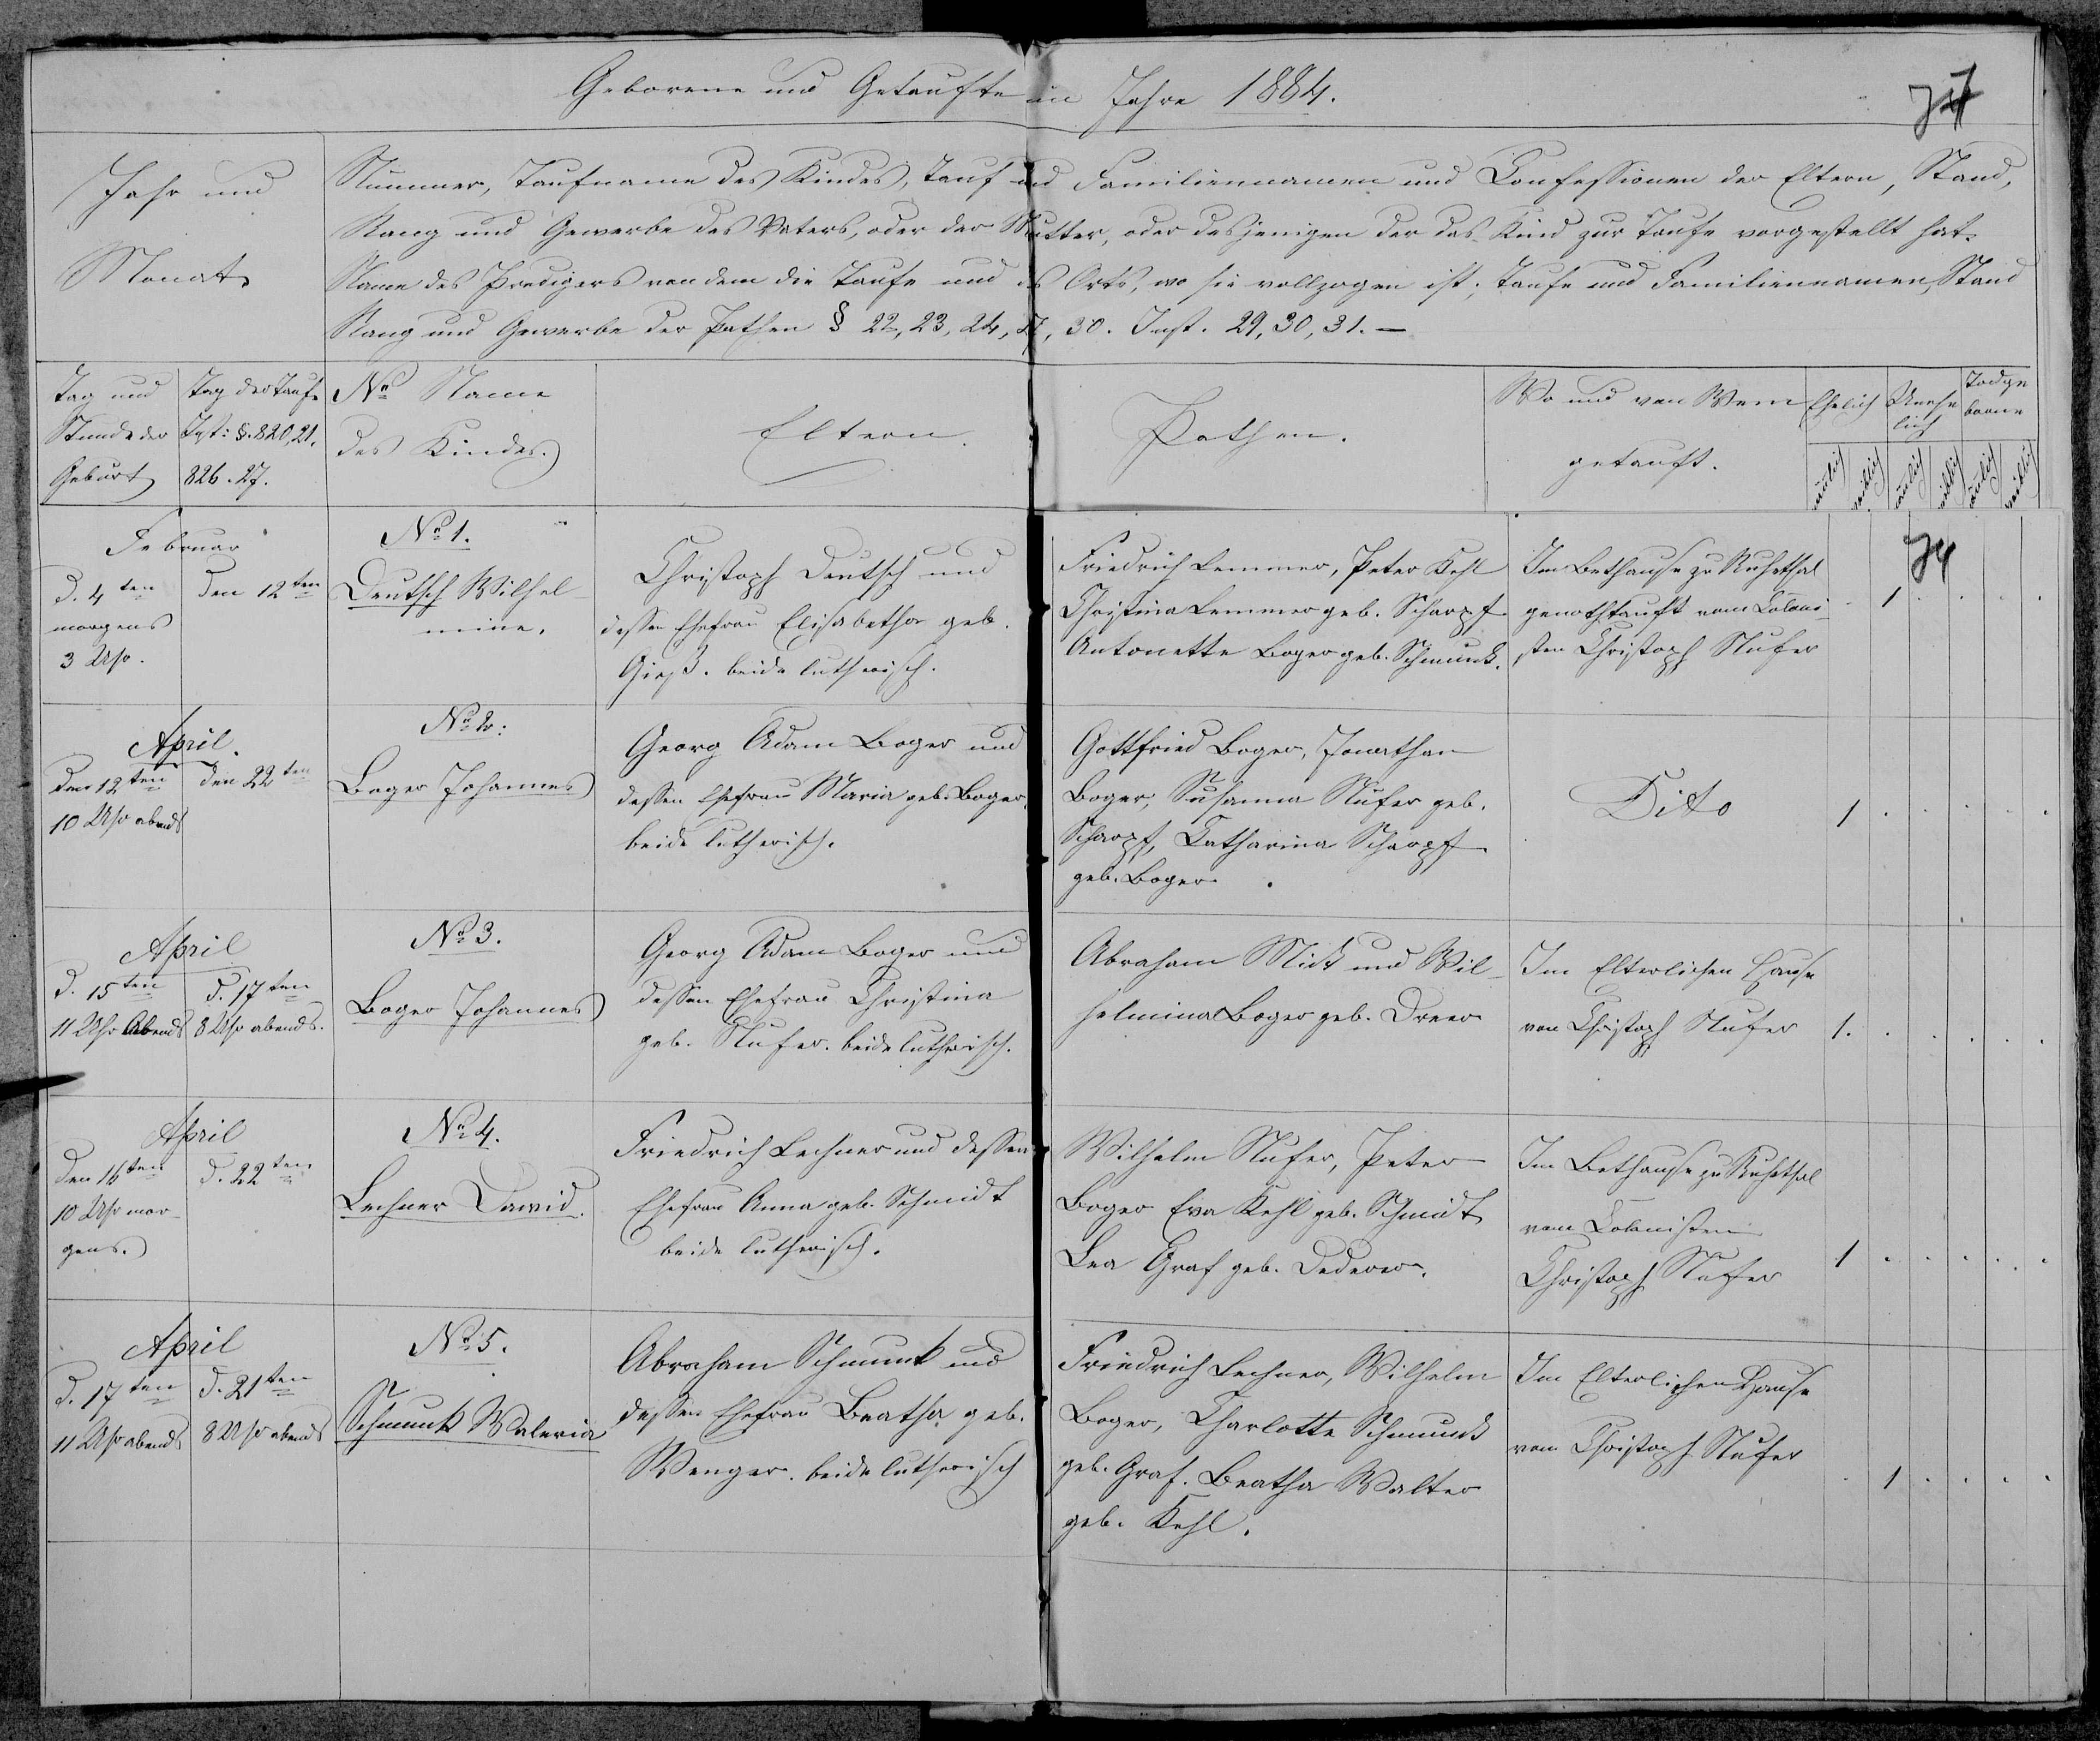 Geborene und Getaufte im Jahre 1884.
Jahr und
Monat
Nummer, Taufname des Kindes, Tauf und Familiennamen und Confessionen der Eltern, Stand,
Rang und Gewerbe des Vaters, oder der Mutter, oder desjenigen der das Kind zur Taufe vorgestellt hat.
Name des Predigers von dem die Taufe und des Orts, wo sie vollzogen ist; Taufe und Familiennamen, Stand
Rang und Gewerbe der Pathen § 22, 23, 24, 27, 30. Inst. 29, 30, 31. —
Tag und
Stunde der
Geburt
Tag der Taufe
Inst: §. 820, 21.
826. 27.
No Name
des Kindes.
Eltern.
Pathen.
Wo und von Wem
getauft.
Ehelich
Unehe
lich
Todge
borne
Februar
d. 4ten
morgens
3 Uhr.
den 12ten
No 1.
Deutsch Wilhel-
mine.
Christoph Deutsch und
dessen Ehefrau Elisabetha geb.
Gieß. beide lutherisch.
Friedrich Lemmer, Peter Kehl
Christina Lemmer geb. Scharpf
Antonette Boger geb. Schmunk.
Im Bethause zu Ruhethal
genothtauft vom Coloni-
sten Christoph Nufer
1
74
April.
den 12ten
10 Uhr abends
den 22ten
No 2.
Boger Johannes
Georg Adam Boger und
dessen Ehefrau Maria geb. Boger.
beide lutherisch.
Gottfried Boger, Jonathan
Boger, Susanna Nufer geb.
Scharpf, Catharina Scharpf
geb. Boger.
Dito
1
April
d. 15ten
11 Uhr Abends
d. 17ten
8 Uhr abends.
No 3.
Boger Johannes
Georg Adam Boger und
dessen Ehefrau Christina
geb. Nufer. beide lutherisch.
Abraham Mick und Wil-
helmina Boger geb. Dreer
Im Elterlichen Hause
von Christoph Nufer
1.
April
den 16ten
10 Uhr mor-
gens.
d. 22ten
No 4.
Lechner David.
Friedrich Lechner und dessen
Ehefrau Anna geb. Schmidt
beide lutherisch.
Wilhelm Nufer, Peter
Boger Eva Kehl geb. Schmidt
Lea Graf geb. Dederer.
Im Bethause zu Ruhethal
vom Colonisten
Christoph Nufer
1
April
d. 17ten
11 Uhr abends
d. 21ten
8 Uhr abends
No 5.
Schmunk Waleria
Abraham Schmunk und
dessen Ehefrau Beatha geb.
Wenger. beide lutherisch
Friedrich Lechner, Wilhelm
Boger, Charlotte Schmunk
geb. Graf. Beatha Walter
geb. Kehl.
Im Elterlichen Hause
vom Christoph Nufer
1